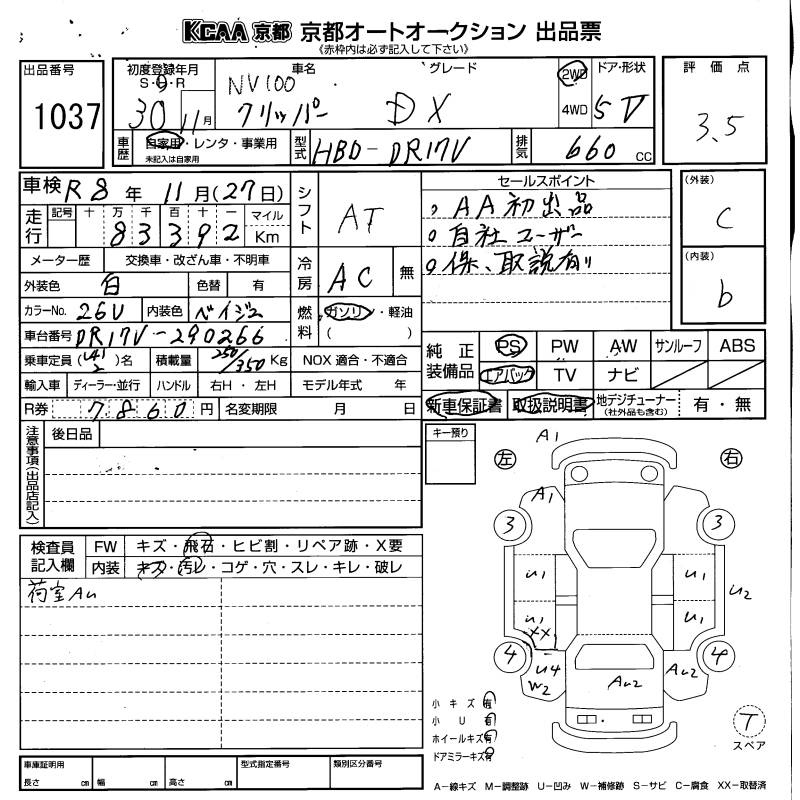 KCAA 京都 京都オートオークション 出品票
《赤枠内は必ず記入して下さい》
出品番号
1037
初度登録年月
S・H・R
30 11月
車名
NV100
クリッパー
グレード
DX
2WD
4WD
ドア・形状
5 V
評価点
3.5
車歴
自家用・レンタ・事業用
未記入は自家用
型式
HBD-DR17V
排気
660 cc
車検 R 8 年 11 月(27日)
走行
記号 十 万 千 百 十 一 マイル
83392 Km
シフト
AT
セールスポイント
。AA初出品
。自社ユーザー
。保、取説有り
(外装)
C
(内装)
b
メーター歴 交換車・改ざん車・不明車
冷房
AC
無
外装色 白 色替 有
カラーNo. 26U 内装色 ベイジュ
燃料
ガソリン・軽油
( )
車台番号 DR17V-290266
乗車定員 (4)名 2 積載量 250/350 Kg NOX 適合・不適合
輸入車 ディーラー・並行 ハンドル 右H・左H モデル年式 年
R券 7860円 名変期限 月 日
純正装備品
PS PW AW サンルーフ ABS
エアバック TV ナビ
新車保証書 取扱説明書 地デジチューナー(社外品も含む) 有・無
注意事項(出品店記入)
後日品
キー預り
検査員記入欄
FW キズ・飛石・ヒビ割・リペア跡・X要
内装 キズ・汚レ・コゲ・穴・スレ・キレ・破レ
荷室AU
左
右
A1
A1
3
3
U1
U1
U2
U1
U1
XX1
4
4
U4
W2
AU2
AU2
小キズ 有
小U 有
ホイールキズ 有
ドアミラーキズ 有
T
スペア
車庫証明用
長さ cm 幅 cm 高さ cm
型式指定番号
類別区分番号
A-線キズ M-調整跡 U-凹み W-補修跡 S-サビ C-腐食 XX-取替済